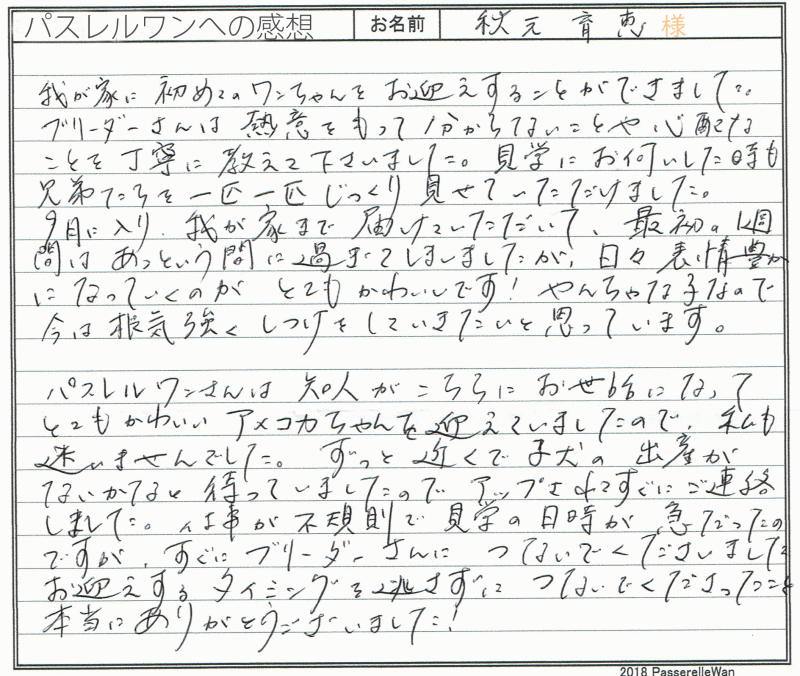 パスレルワンへの感想 お名前 秋元 育恵 様
我が家に初めてのワンちゃんをお迎えすることができました。
ブリーダーさんは熱意をもって分からないことや心配な
ことを丁寧に教えて下さいました。見学にお伺いした時も
兄弟たちを一匹一匹じっくり見せていただけました。
9月に入り、我が家まで届けていただいて、最初の1週
間はあっという間に過ぎてしまいましたが、日々表情豊か
になっていくのがとてもかわいいです！やんちゃな子なので
今は根気強くしつけをしていきたいと思っています。
パスレルワンさんは知人がこちらにお世話になって
とてもかわいいアメコカちゃんを迎えていましたので、私も
迷いませんでした。ずっと近くで子犬の出産が
ないかなと待っていましたのでアップされてすぐにご連絡
しました。仕事が不規則で見学の日時が急だったの
ですが、すぐにブリーダーさんにつないでくださいました
お迎えするタイミングを逃さずにつないでくださったこと
本当にありがとうございました！
2018 PasserelleWan